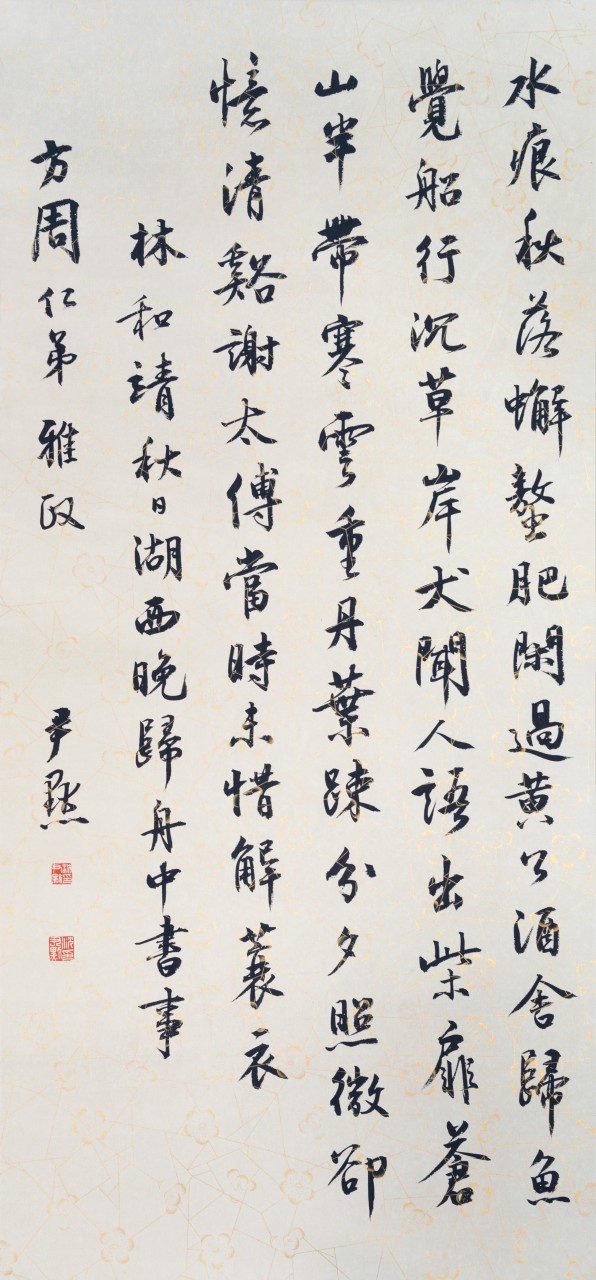 水痕秋落蠏螯肥閑過黄公酒舍歸魚
覺船行沉草岸犬聞人語出柴扉蒼
山半帶寒雲重丹葉踈分夕照微卻
憶清谿謝太傅當時未惜解蓑衣
林和靖秋日湖西晚歸舟中書事
方周仁弟雅政
尹默